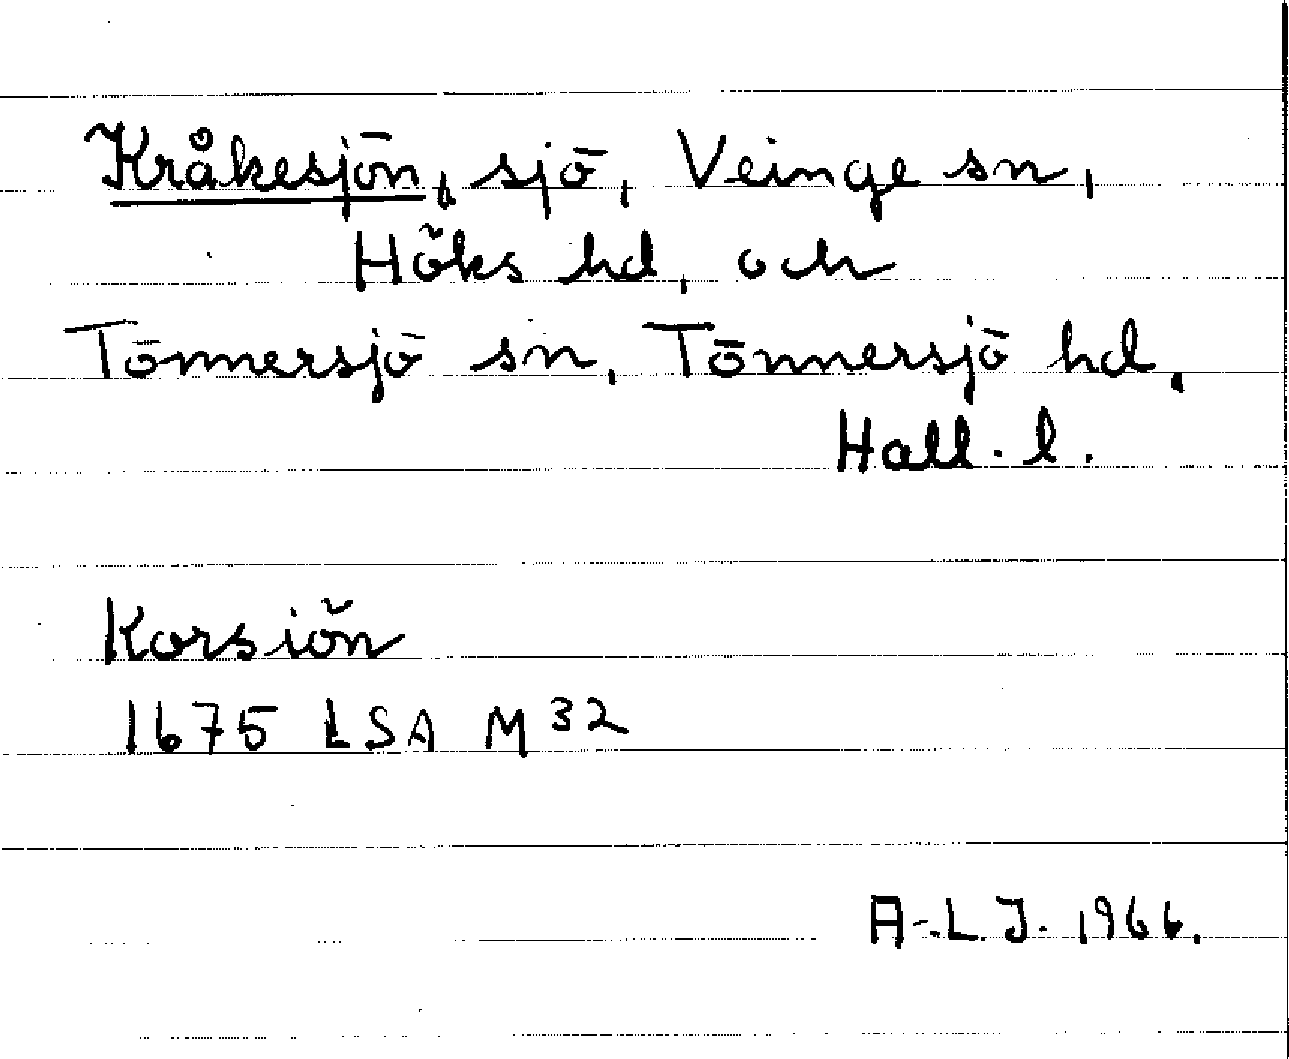 Kråkesjön, sjö, Veinge sn,
Höks hd, och
Tönnersjö sn, Tönnersjö hd,
Hall. l.
Korsiön
1675 LSA M 32
A-L.J. 1966.